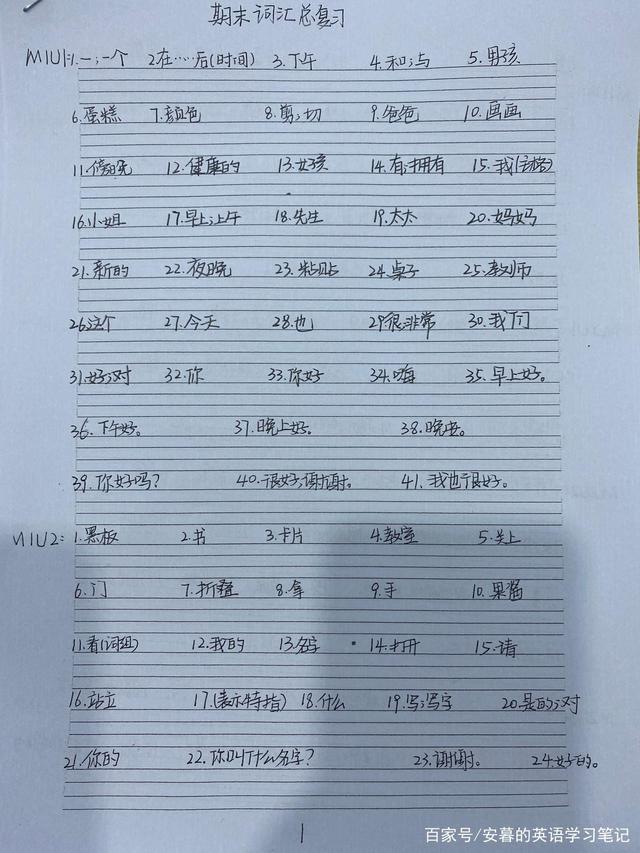 期末词汇总复习
M1U1:1.一;一个 2.在……后(时间) 3.下午 4.和;与 5.男孩
6.蛋糕 7.颜色 8.剪;切 9.爸爸 10.画画
11.傍晚 12.健康的 13.女孩 14.有;拥有 15.我(主格)
16.小姐 17.早上;上午 18.先生 19.太太 20.妈妈
21.新的 22.夜晚 23.粘贴 24.桌子 25.教师
26.这个 27.今天 28.也 29.很;非常 30.我们
31.好;对 32.你 33.你好 34.嗨 35.早上好。
36.下午好。 37.晚上好。 38.晚安。
39.你好吗? 40.很好,谢谢。 41.我也很好。
M1U2:1.黑板 2.书 3.卡片 4.教室 5.关上
6.门 7.折叠 8.拿 9.手 10.果酱
11.看(词组) 12.我的 13.名字 14.打开 15.请
16.站立 17.(表示特指) 18.什么 19.写;写字 20.是的;对
21.你的 22.你叫什么名字? 23.谢谢。 24.好的。
1
百家号/安暮的英语学习笔记